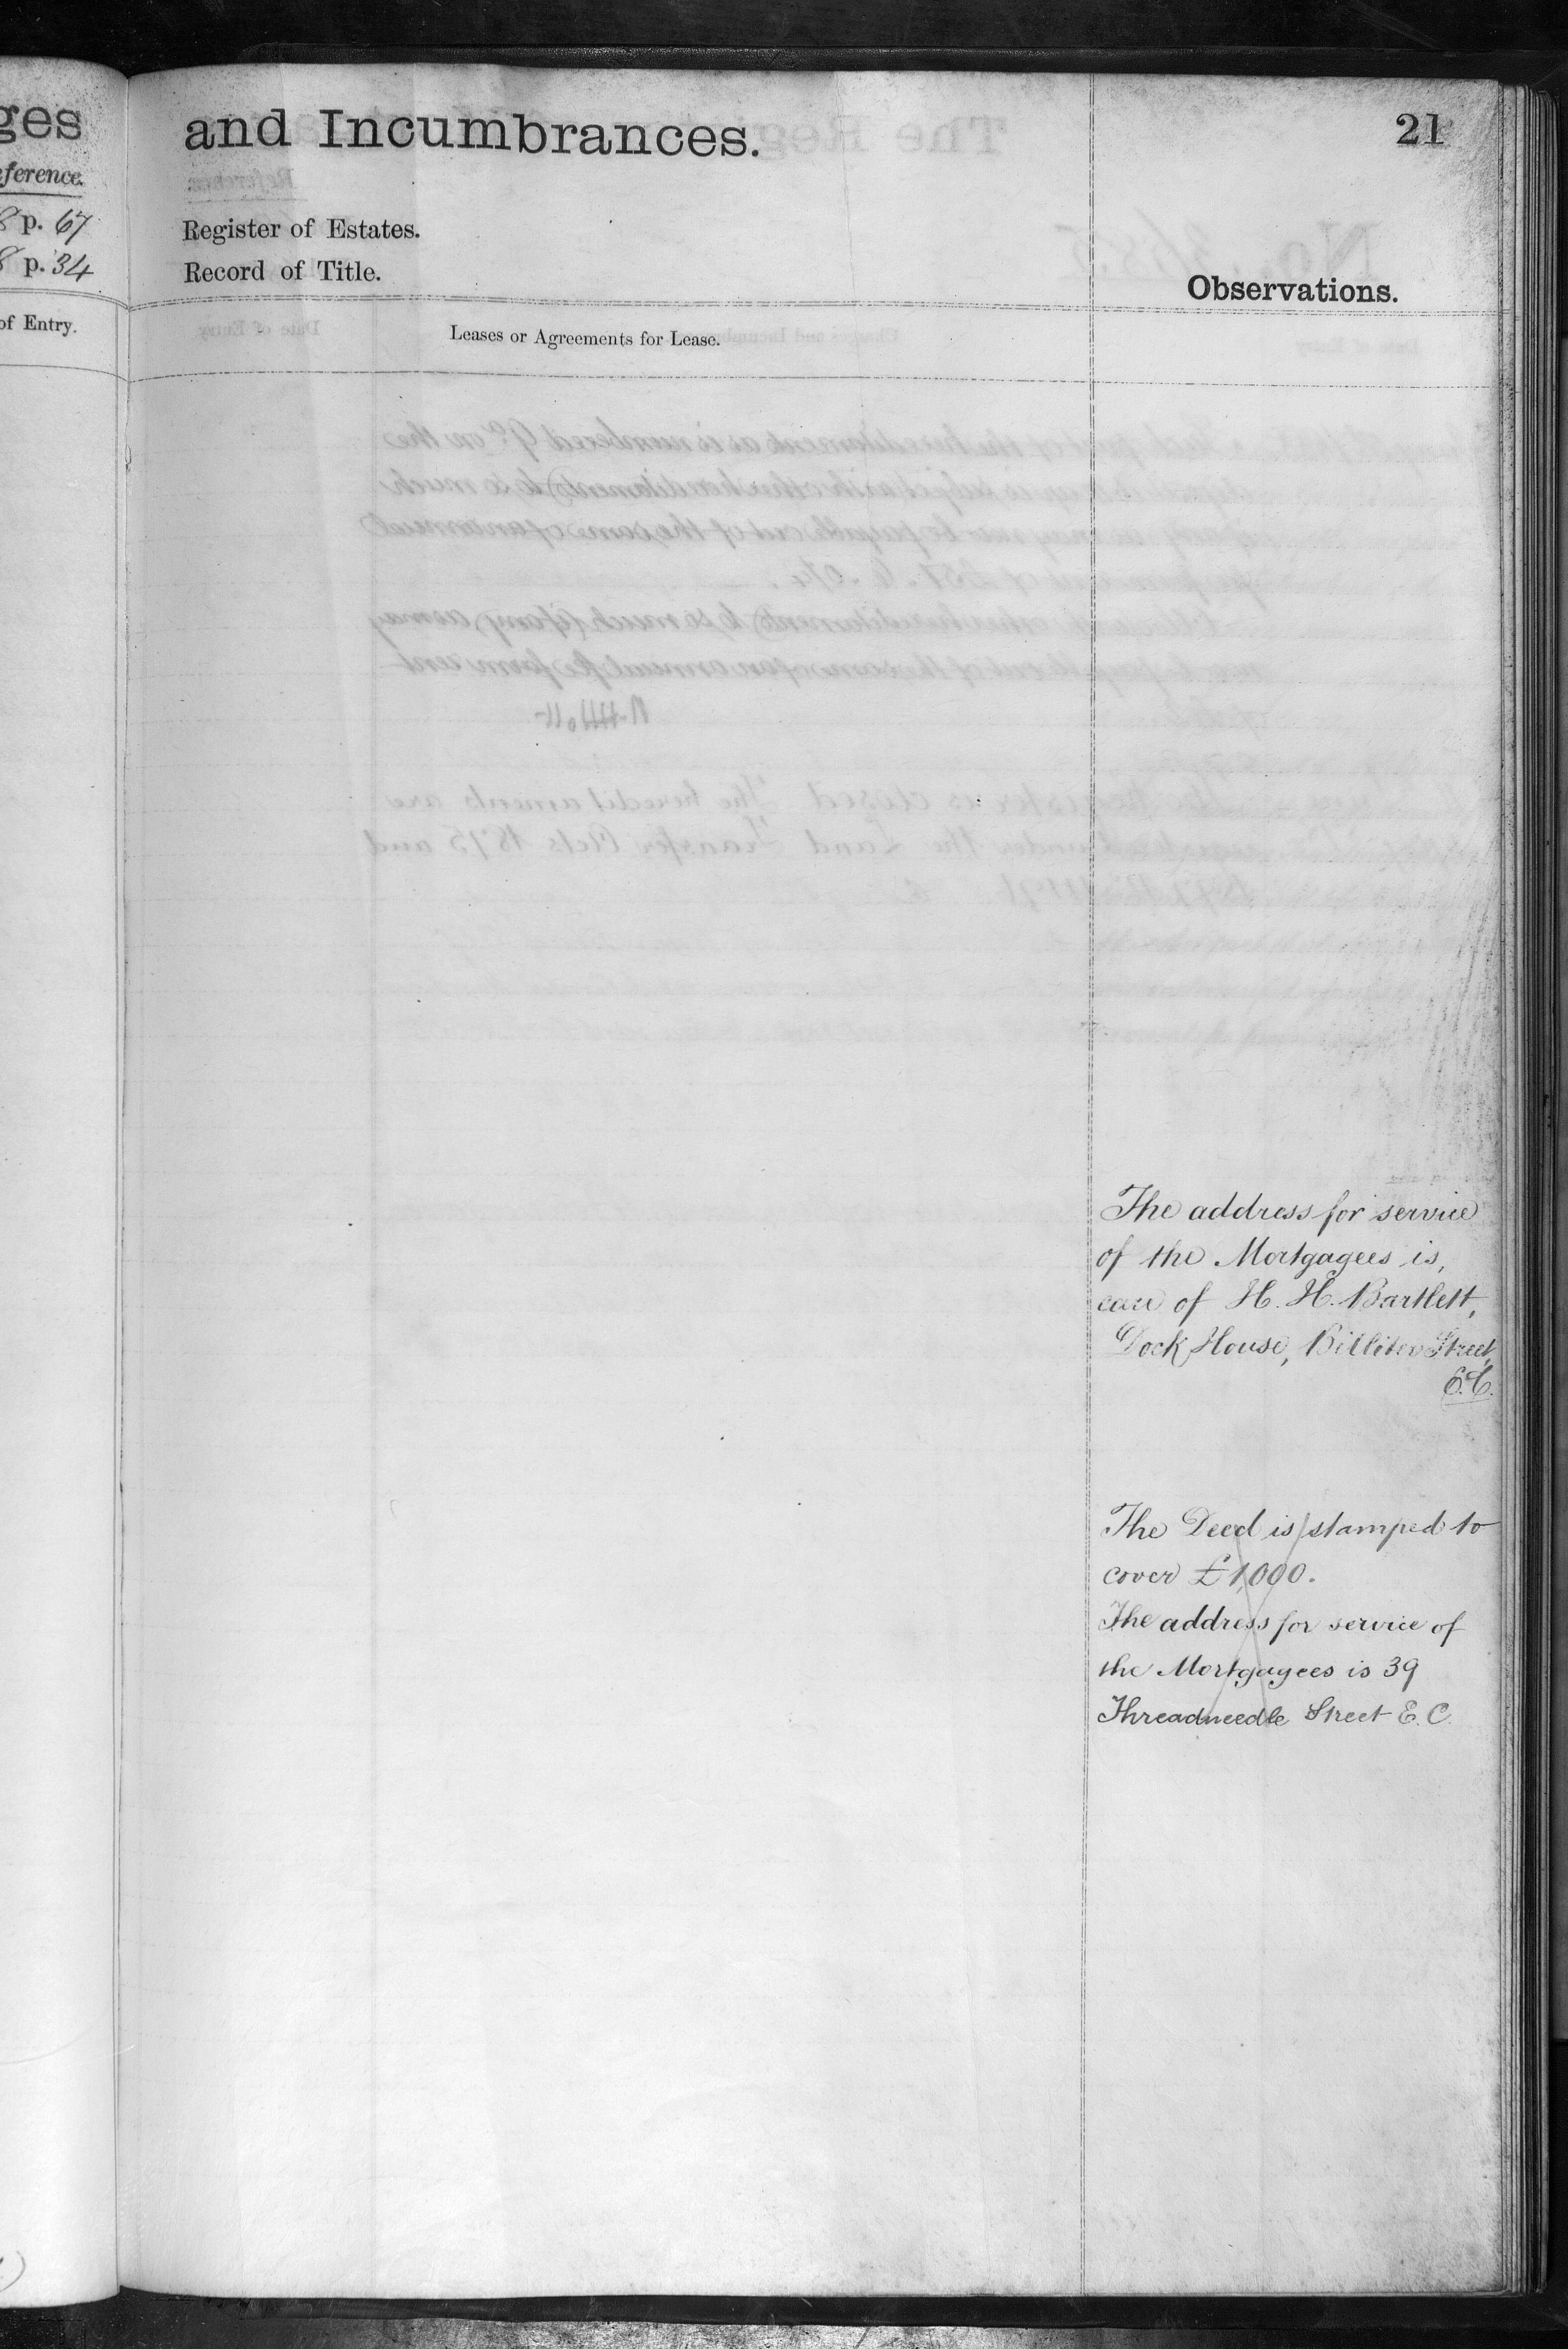 ges
ference.
8 p. 67
8 p. 34
of Entry.
and Incumbrances.
21
Register of Estates.
Record of Title.
Observations.
Leases or Agreements for Lease.
The address for service
of the Mortgagees is,
care of H. H. Bartlett,
Dock House, Billiter Street,
E.C.
The Deed is stamped to
cover £1,000.
The address for service of
the Mortgagees is 39
Threadneedle Street E.C.